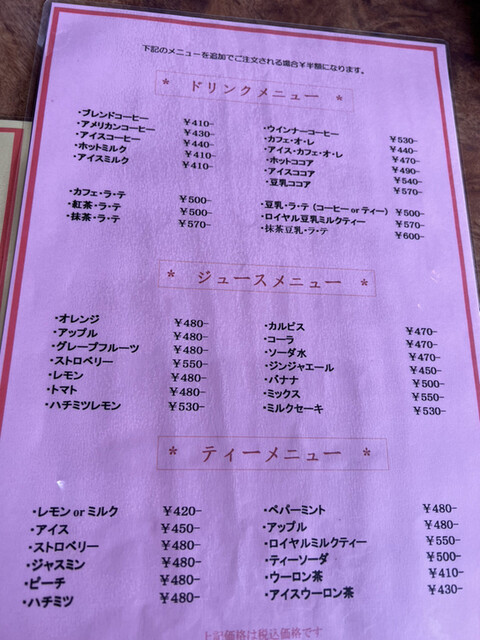 下記のメニューを追加でご注文される場合￥半額になります。
* ドリンクメニュー *
・ブレンドコーヒー ￥410-
・アメリカンコーヒー ￥430-
・アイスコーヒー ￥440-
・ホットミルク ￥410-
・アイスミルク ￥410-
・ウインナーコーヒー ￥530-
・カフェ・オ・レ ￥440-
・アイス・カフェ・オ・レ ￥470-
・ホットココア ￥490-
・アイスココア ￥540-
・豆乳ココア ￥570-
・カフェ・ラ・テ ￥500-
・紅茶・ラ・テ ￥500-
・抹茶・ラ・テ ￥570-
・豆乳・ラ・テ（コーヒー or ティー） ￥500-
・ロイヤル豆乳ミルクティー ￥570-
・抹茶豆乳・ラ・テ ￥600-
* ジュースメニュー *
・オレンジ ￥480-
・アップル ￥480-
・グレープフルーツ ￥480-
・ストロベリー ￥550-
・レモン ￥480-
・トマト ￥480-
・ハチミツレモン ￥530-
・カルピス ￥470-
・コーラ ￥470-
・ソーダ水 ￥470-
・ジンジャエール ￥450-
・バナナ ￥500-
・ミックス ￥550-
・ミルクセーキ ￥530-
* ティーメニュー *
・レモン or ミルク ￥420-
・アイス ￥450-
・ストロベリー ￥480-
・ジャスミン ￥480-
・ピーチ ￥480-
・ハチミツ ￥480-
・ペパーミント ￥480-
・アップル ￥480-
・ロイヤルミルクティー ￥550-
・ティーソーダ ￥500-
・ウーロン茶 ￥410-
・アイスウーロン茶 ￥430-
上記価格は税込価格です